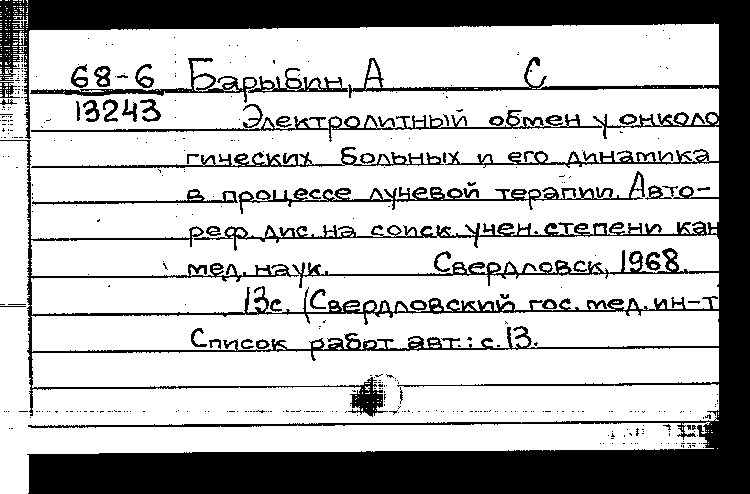 68-6 Барыбин, А С
13243
Электролитный обмен у онколо
гических больных и его динамика
в процессе лучевой терапии. Авто-
реф. дис. на соиск. учен. степени кан
мед. наук. Свердловск, 1968.
13с. (Свердловский гос. мед. ин-т
Список работ авт.: с. 13.